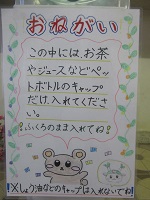 おねがい
この中には、お茶
やジュースなどペッ
トボトルのキャップ
だけ、入れてくださ
い。
!ふくろのまま入れてね!
!×しょう油などのキャップは入れないでね!